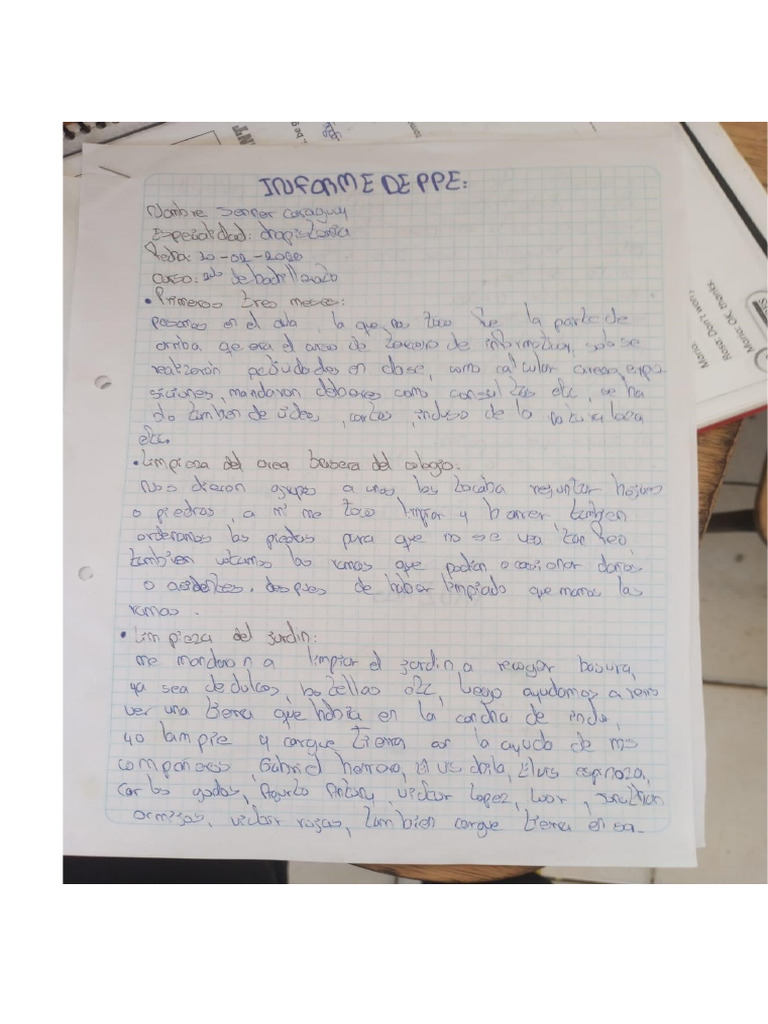 INFORME DE PPE:
Nombre Jenner Caraguay
Especialidad:
Fecha: 20-02-2020
Curso: 2do de bachillerato
• Primeros tres meses:
pasamos en el aula, la que nos toco fue la parte de
arriba que era el area de tercero de informatica, solo se
realizaron actividades en clase, como calcular areas, expo
siciones, mandaron deberes como consultas etc, se ha
do tambien de videos, cartas, incluso de la naturaleza
etc.
• Limpieza del area basera del colegio:
Nos dieron grupos a unos les tocaba rejuntar hojas
o piedras, a mi me toco limpiar y barrer, tambien
ordenamos las piedras para que no se vea tan feo,
tambien votamos las ramas que podian ocasionar daños
o accidentes. despues de haber limpiado quemamos las
ramas.
• Limpieza del jardin:
me mandaron a limpiar el jardin a recoger basura,
ya sea de dulces, botellas etc, luego ayudamos a remo
ver una tierra que habia en la cancha de indor,
yo lampie y cargue tierra con la ayuda de mis
compañeros, Gabriel herrera, Elvis, Elvis espinoza,
Carlos, Antony, victor Lopez, Loor, Jonathan
victor rojas, tambien cargue tierra en sa-
Maria:
Rosa: Don't worry
Maria: OK, thanks.